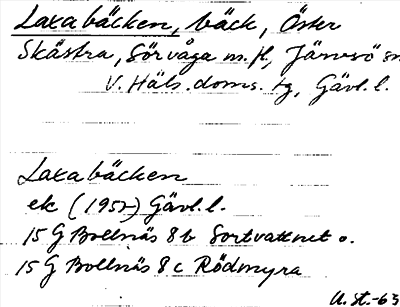 Laxabäcken, bäck, Öster
Skästra, Sörvåga m.fl, Järvsö sn
V. Häls. doms. tg, Gävl. l.
Laxabäcken
ek (1957) Gävl. l.
15 G Bollnäs 8 b Svartvattnet o.
15 G Bollnäs 8 c Rödmyra
U. St. -63